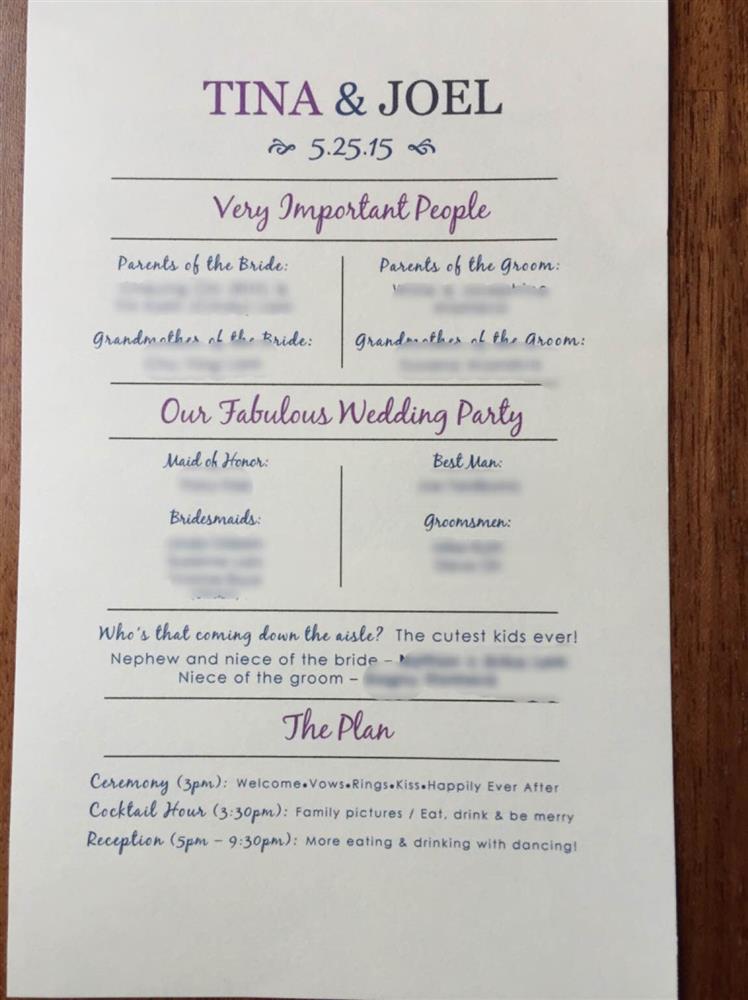 TINA & JOEL
5.25.15
Very Important People
Parents of the Bride:
Parents of the Groom:
Grandmother of the Bride:
Grandmother of the Groom:
Our Fabulous Wedding Party
Maid of Honor:
Best Man:
Bridesmaids:
Groomsmen:
Who's that coming down the aisle? The cutest kids ever!
Nephew and niece of the bride –
Niece of the groom –
The Plan
Ceremony (3pm): Welcome•Vows•Rings•Kiss•Happily Ever After
Cocktail Hour (3:30pm): Family pictures / Eat, drink & be merry
Reception (5pm – 9:30pm): More eating & drinking with dancing!